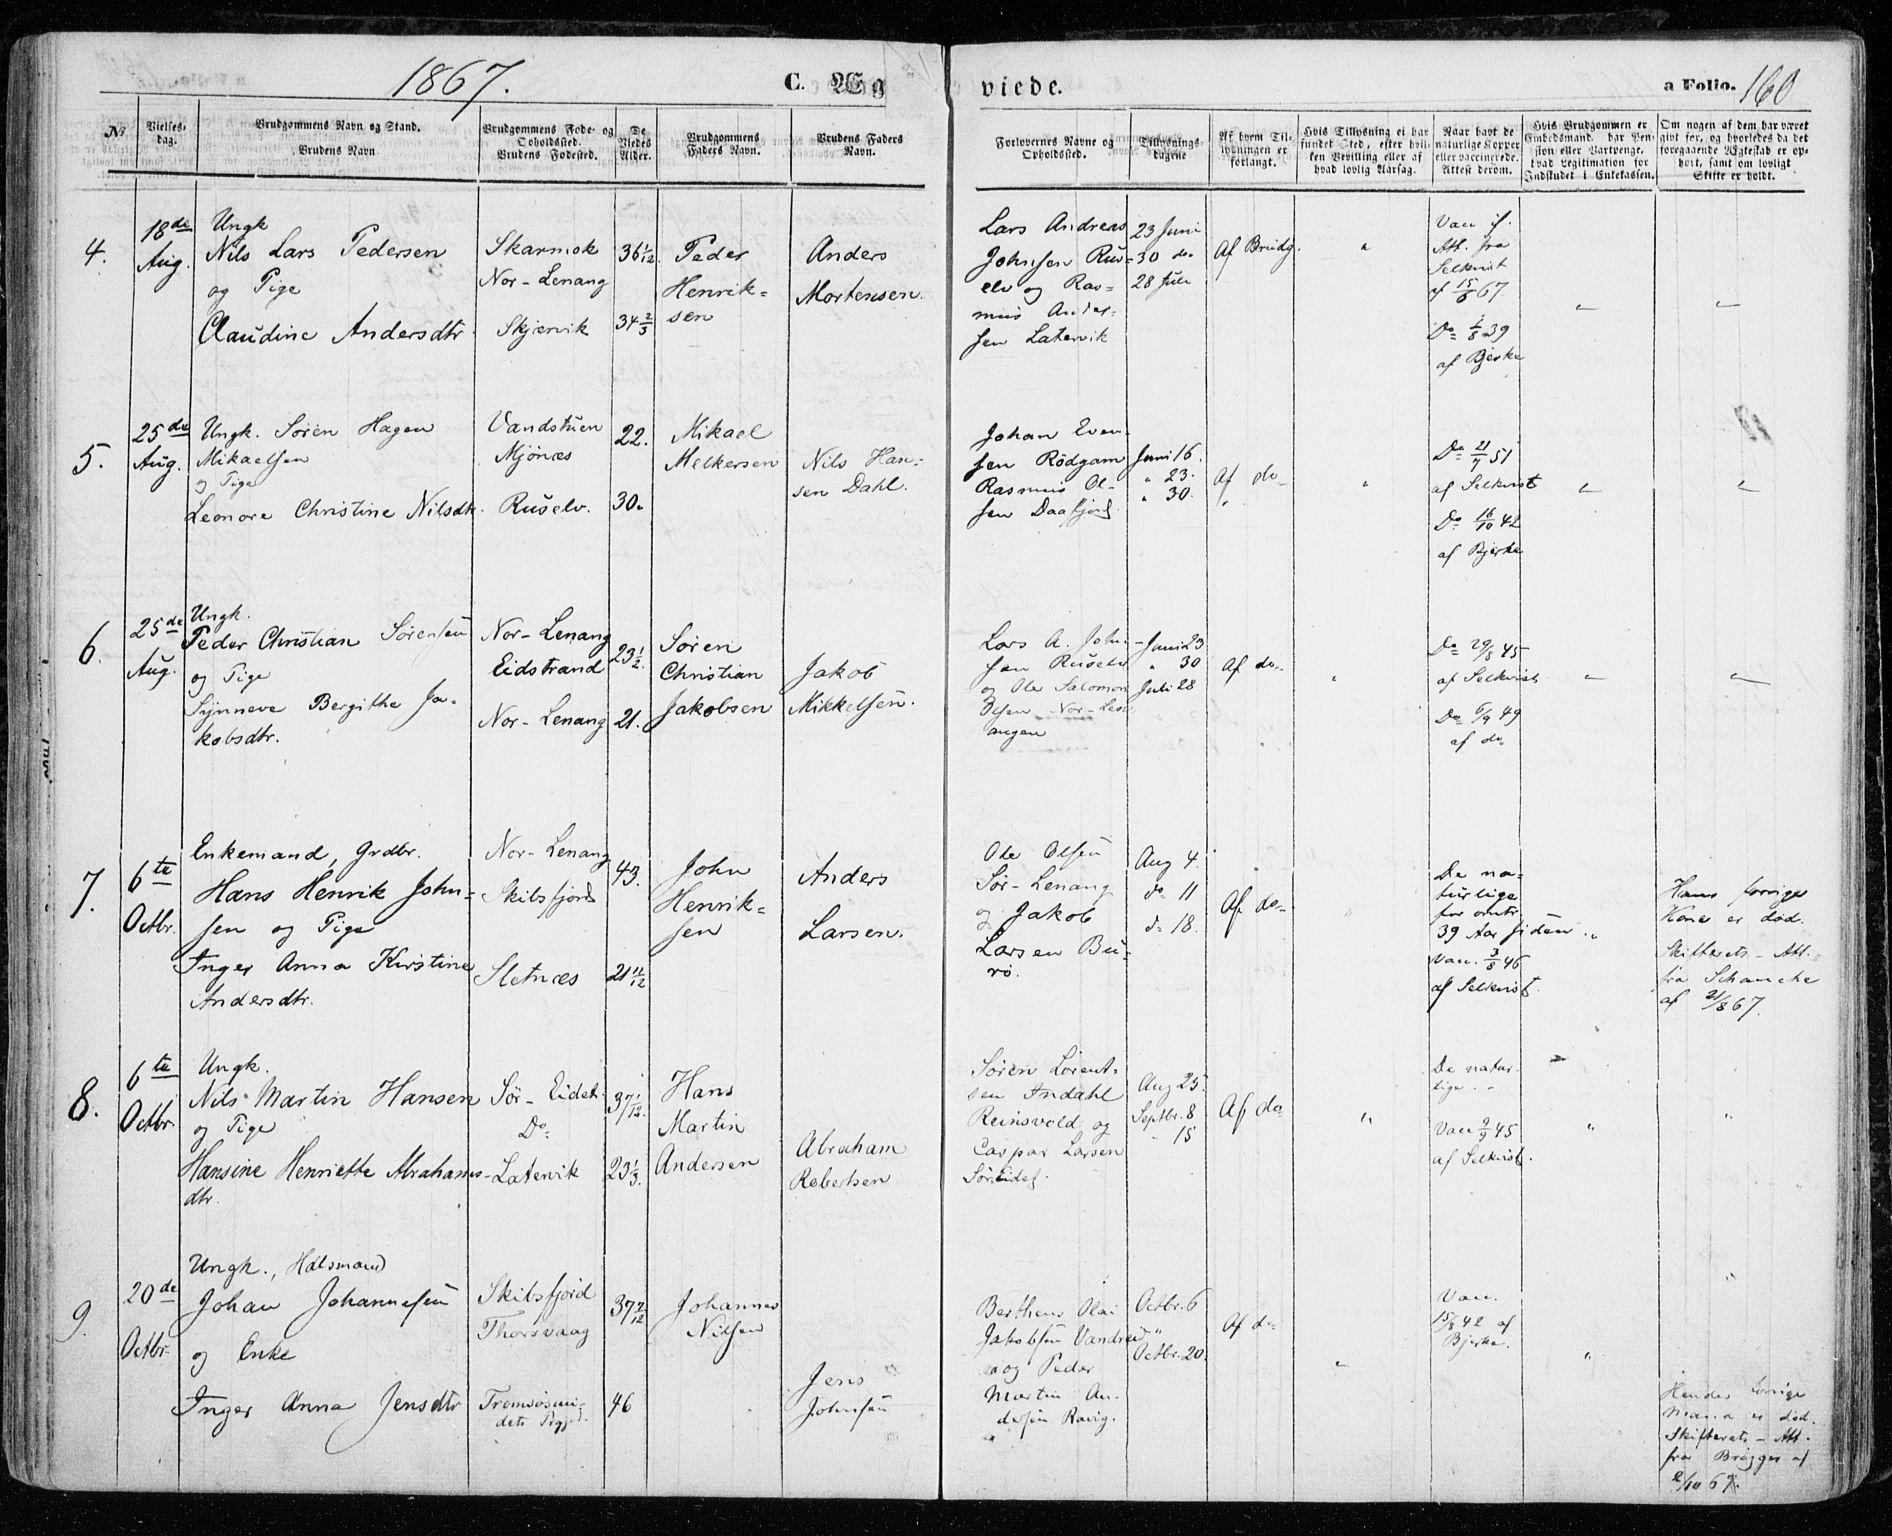 1867.
C. Ægteviede.
a Folio. 160
№
Vielses-dag.
Brudgommens Navn og Stand.
Brudens Navn.
Brudgommens Føde- og Opholdssted.
Brudens Fødested.
De Viedes Alder.
Brudgommens Faders Navn.
Brudens Faders Navn.
Forlovernes Navne og Opholdssted.
Tillysnings-dagene
Af hvem Tillysningen er forlangt.
Hvis Tillysning ei har fundet Sted, efter hvilken Bevilling eller af hvad lovlig Aarsag.
Naar havt de naturlige Kopper eller vaccinerede. Attest derom.
Hvis Brudgommen er Embedsmand, har Pension eller Vartpenge, hvad Legitimation for Indskudet i Enkekassen.
Om nogen af dem har været givt før, og hvorledes da det foregaaende Ægteskab er ophørt, samt om lovligt Skifte er holdt.
4.
18de Aug.
Ungk
Nils Lars Pedersen
og Pige
Claudine Andersdtr.
Skarmok
Nor-Lenang
Skjærvik
36 1/12
34 2/3
Peder
Henrik=
sen
Anders
Mortensen.
Lars Andreas
Johnsen Rus=
elv og Ras=
mus Ander-
sen Latervik
23 Juni
30 do
28 Juli
Af Brudg.
Vac. if.
Att. fra
Selkvist
af 15/6 67
Do 1/8 39
af Bjerke
5.
25de Aug.
Ungk. Søren Hagen
Mikaelsen
og Pige
Leonore Christine Nilsdtr.
Vandstuen
Mjönæs
Ruselv.
22.
30.
Mikael
Melkersen
Nils Han-
sen Dahl.
Johan Even-
sen Rödgam
Rasmus Ol-
sen Daafjord
Juni 16.
" 23.
" 30.
Af do
Do 21/7 51
af Selkvist
Do 16/10 42
af Bjerke
6.
25de Aug.
Ungk.
Peder Christian Sørensen
og Pige
Synneve Bergithe Ja-
kobsdtr.
Nor-Lenang
Eidstrand
Nor-Lenang
23 1/2.
21.
Søren
Christian
Jakobsen
Jakob
Mikkelsen.
Lars A. John-
sen Ruselv
og Ole Salomon
Olsen Nor-Len-
angen
Juni 23
" 30
Juli 28
Af do.
Do 29/8 45
af Selkvist
Do 6/9 49
af do
7.
6te Octbr.
Enkemand, Grdbr.
Hans Henrik John=
sen og Pige
Inger Anna Kirstine
Andersdtr.
Nor-Lenang
Skibsfjord
Sletnæs
43.
21 11/12
John
Henrik=
sen
Anders
Larsen.
Ole Olsen
Sør-Lenang
og Jakob
Larsen Bu-
rö.
Aug 4.
do 11
do 18.
Af do
De na-
turlige
for omtr.
39 Aar siden.
Vac. 3/8 46
af Selkvist.
Hans forrige
Kone er död.
Skifterets-Att.
fra Schancke
af 21/8 67.
8.
6te Octbr.
Ungk.
Nils Martin Hansen
og Pige
Hansine Henriette Abrahams-
dtr.
Sør-Eidet
Do
Latervik
37 1/12.
23 1/3.
Hans
Martin
Andersen
Abraham
Robertsen
Søren Lorent-
sen Indahl
Reinsvold og
Caspar Larsen
Søreidet.
Aug 25
Septbr. 8
" 15
Af do
De natur-
lige.
Vac 9/9 45
af Selkvist.
9.
20de Octbr
Ungk., Halsmand
Johan Johannesen
og Enke
Inger Anna Jensdtr
Skibsfjord
Thorsvaag
Tromsösun-
dets Prgj.
37 7/12
46
Johannes
Nilsen
Jens
Johnsen
Berthens Olai
Jakobsen Vandreid
og Peder
Martin An-
dersen Ravig.
Octbr. 6
"
Octbr. 20.
Af do
Vac.
15/8 42 af
Bjerke.
Hendes forrige
Mand er död.
Skifterets-Att.
fra Brügger af
2/10 67.